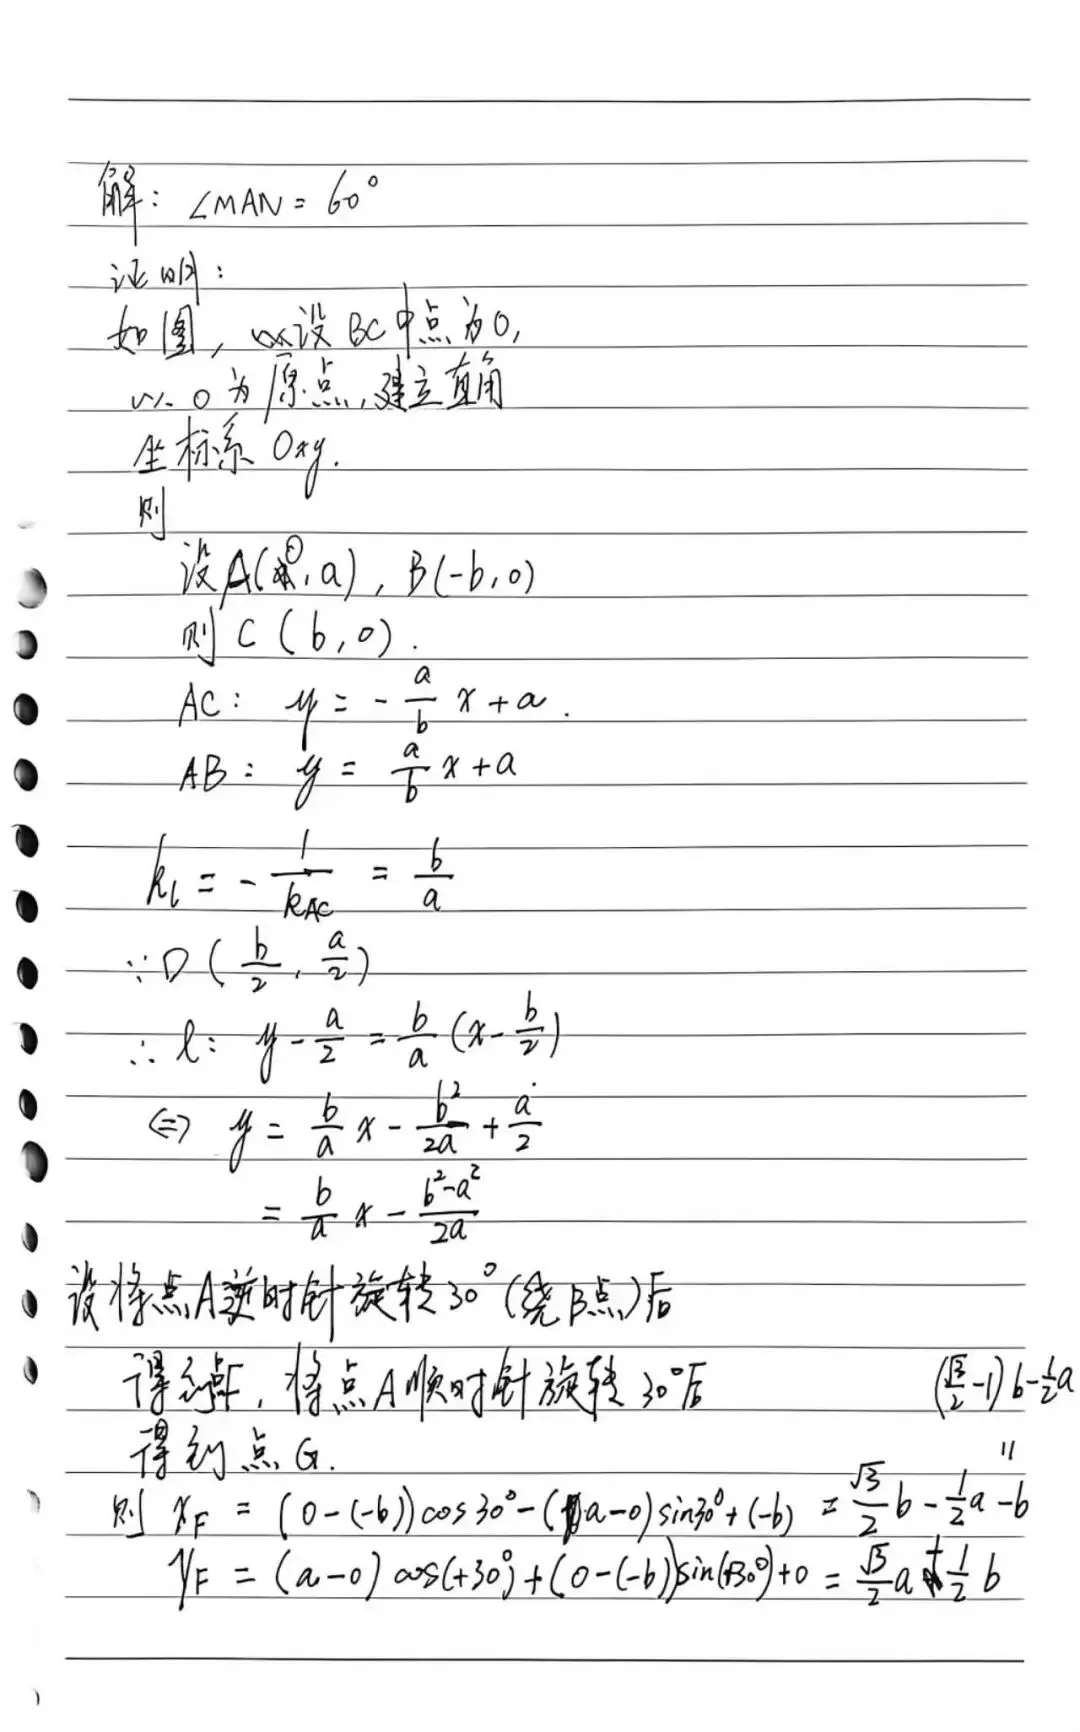 解: ∠MAN = 60°
证明:
如图, 设 BC中点为O,
以 O 为原点, 建立直角
坐标系 Oxy.
则
设 A(0, a), B(-b, 0)
则 C (b, 0).
AC: y = - a/b x + a.
AB: y = a/b x + a
k_l = - 1/k_AC = b/a
∵ D (b/2, a/2)
∴ l: y - a/2 = b/a (x - b/2)
⇔ y = b/a x - b²/2a + a/2
= b/a x - (b²-a²)/2a
设将点A逆时针旋转30°(绕B点)后
得到点F, 将点A顺时针旋转30°后
(√3/2 - 1) b - 1/2 a
得到点 G.
=
则 x_F = (0-(-b)) cos30° - (a-0) sin30° + (-b) = √3/2 b - 1/2 a - b
y_F = (a-0) cos(+30°) + (0-(-b)) sin(+30°) + 0 = √3/2 a + 1/2 b